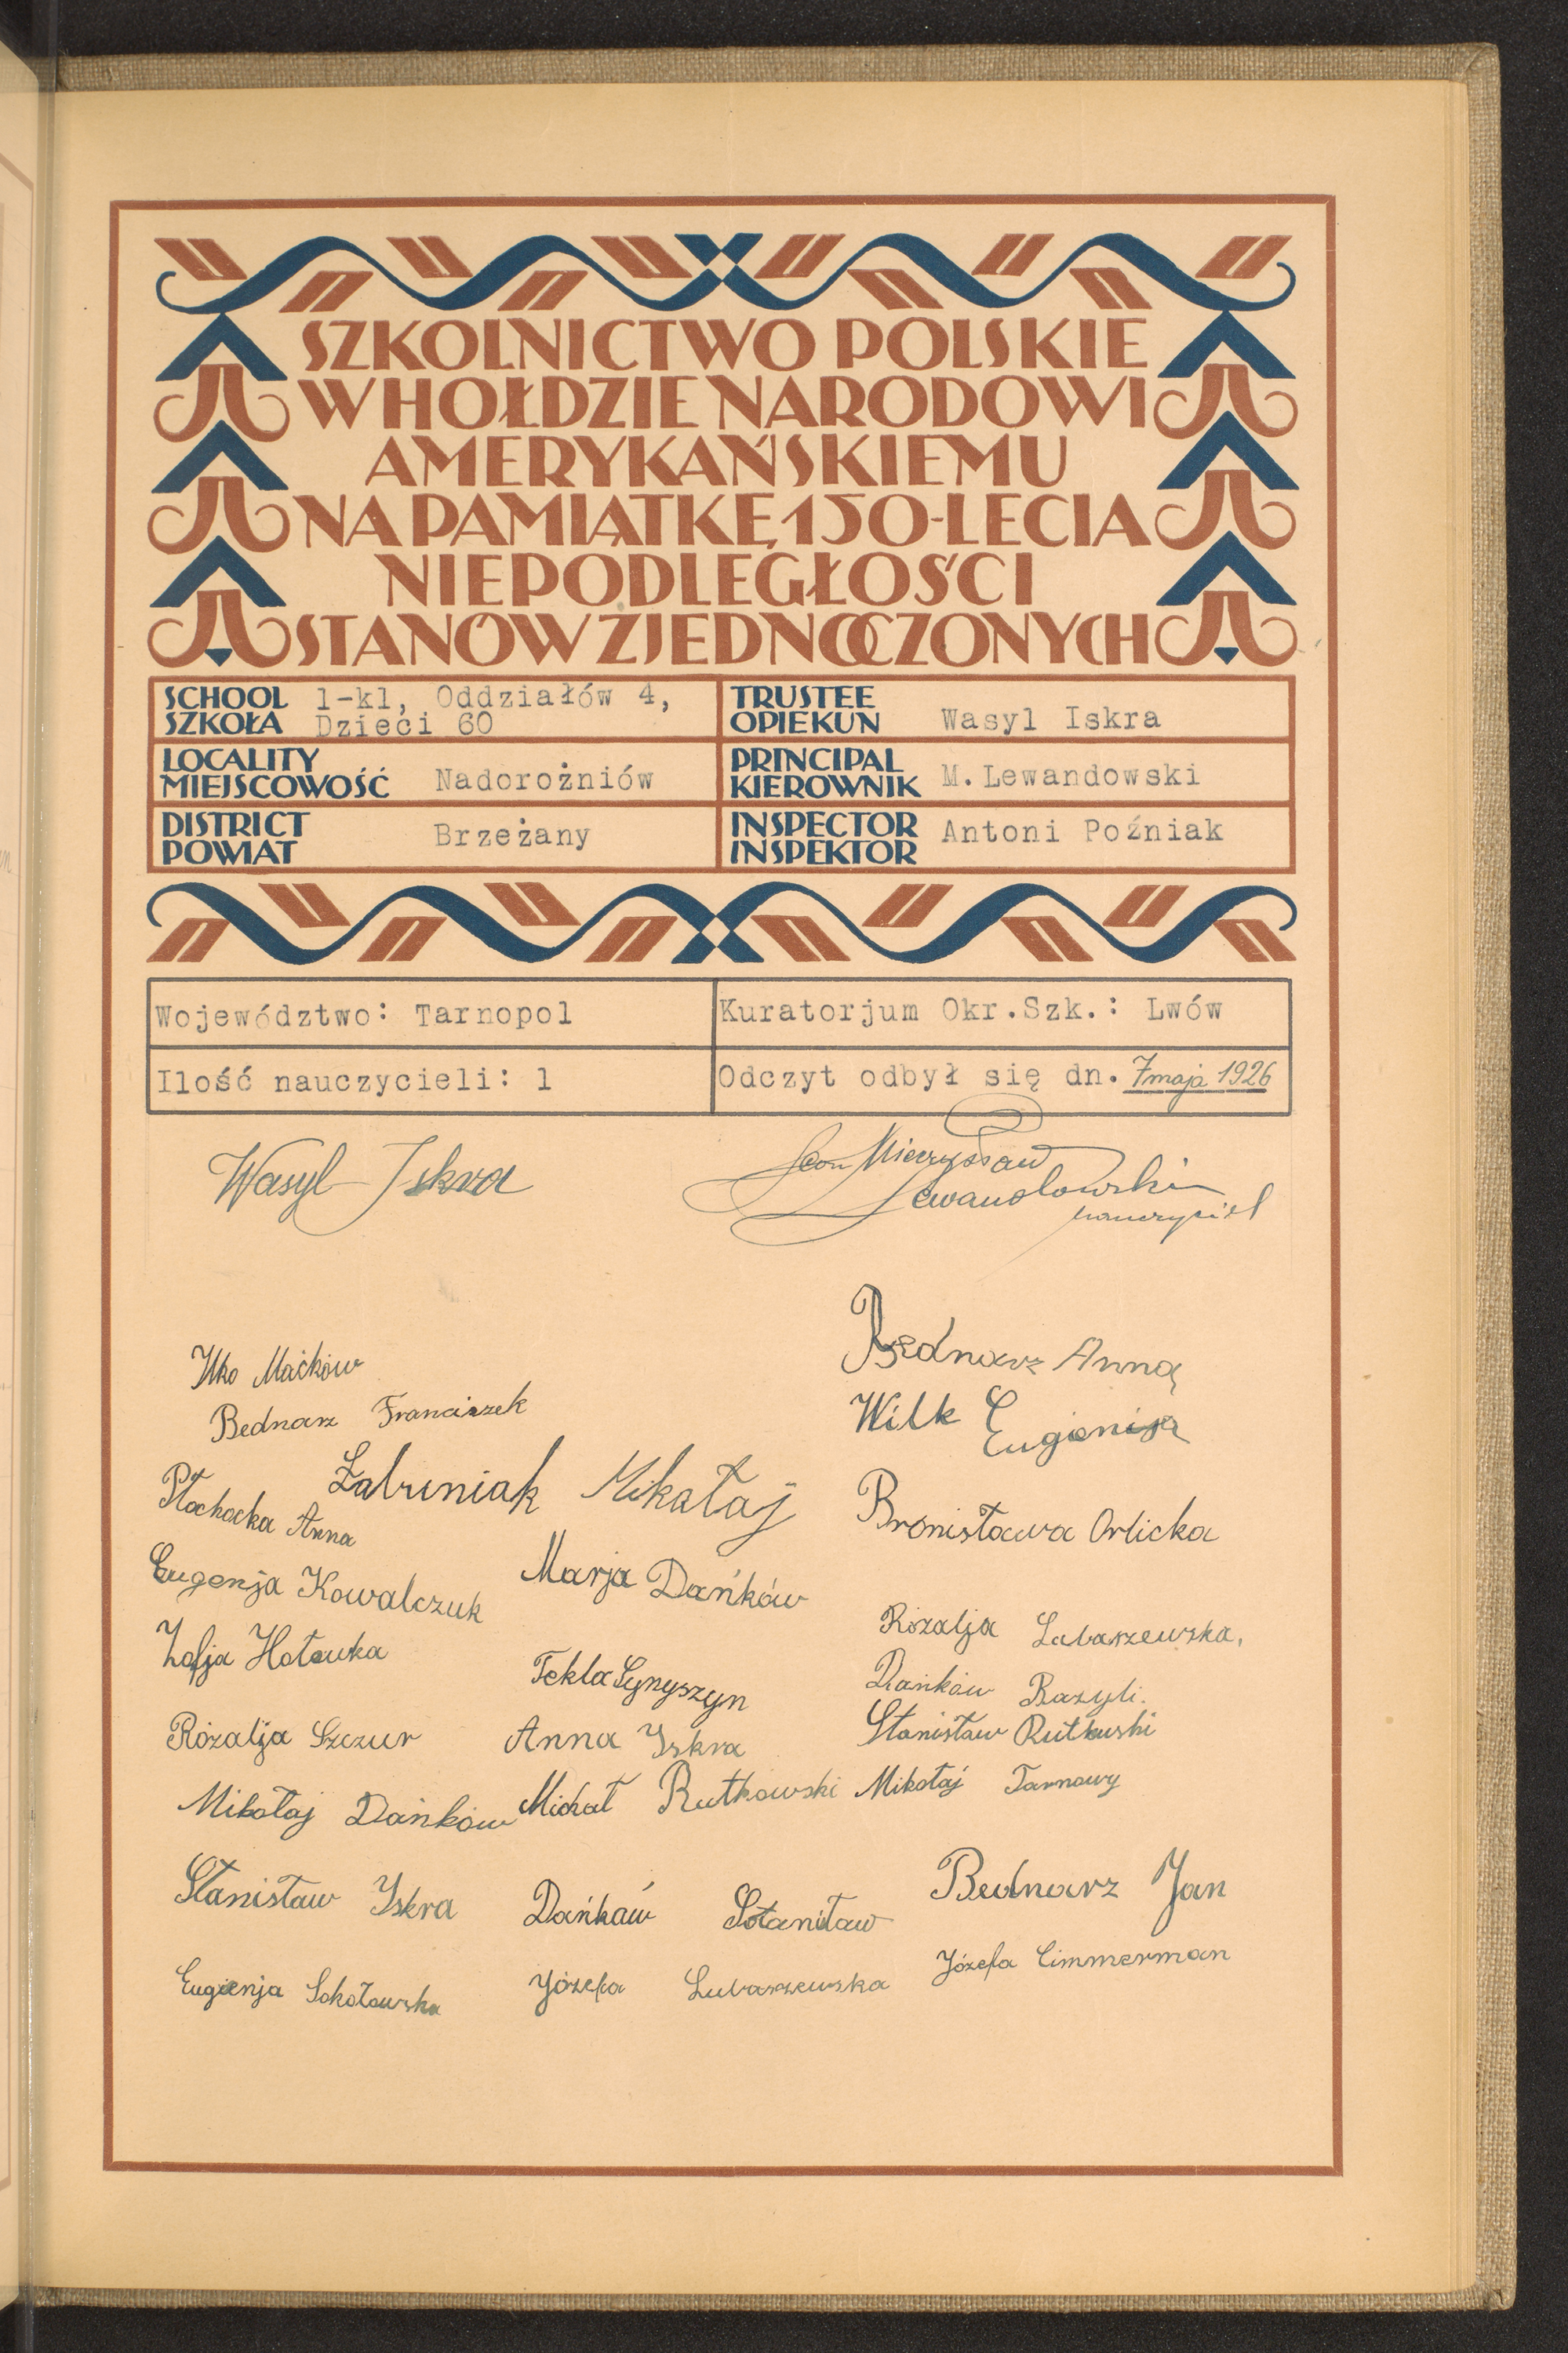 SZKOLNICTWO POLSKIE
W HOŁDZIE NARODOWI
AMERYKAŃSKIEMU
NA PAMIĄTKĘ 150-LECIA
NIEPODLEGŁOŚCI
STANÓW ZJEDNOCZONYCH
SCHOOL
SZKOŁA
1-kl, Oddziałów 4,
Dzieci 60
TRUSTEE
OPIEKUN
Wasyl Iskra
LOCALITY
MIEJSCOWOŚĆ
Nadorożniów
PRINCIPAL
KIEROWNIK
M.Lewandowski
DISTRICT
POWIAT
Brzeżany
INSPECTOR
INSPEKTOR
Antoni Poźniak
Województwo: Tarnopol
Kuratorjum Okr.Szk.: Lwów
Ilość nauczycieli: 1
Odczyt odbył się dn. 7 maja 1926
Wasyl Iskra
Leon Mieczysław
Lewandowski
nauczyciel
Bednarz Anna
Ilko Maćków
Bednarz Franciszek
Wilk Eugienija
Mikałaj
Płochocka Anna
Bronisława Orlicka
Eugenja Kowalczuk
Marja Dańków
Zofja Hotowka
Rozalja Lubaszewska,
Tekla Synyszyn
Dańków Bazyli.
Stanisław Rutkuski
Rozalja Szczur
Anna Iskra
Mikołaj Dańków
Michał Rutkowski
Mikołaj Tarnowy
Stanisław Iskra
Dańkaw
Bednarz Jan
Eugienja Sokołowska
Józefa Lubaszewska
Józefa Cimmerman